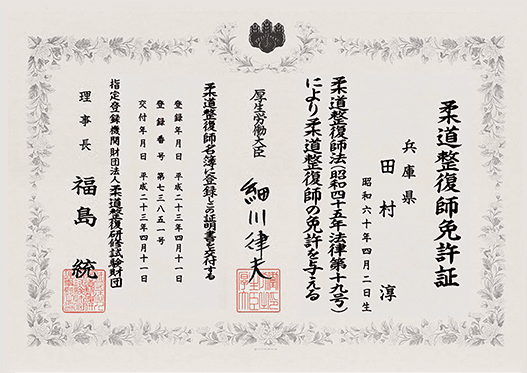 柔道整復師免許証
兵庫県
田村 淳
昭和六十年四月二日生
柔道整復師法(昭和四十五年法律第十九号)
により柔道整復師の免許を与える
厚生労働大臣 細川律夫
柔道整復師名簿に登録しこの証明書を交付する
登録年月日 平成二十三年四月十一日
登録番号 第七三八五一号
交付年月日 平成二十三年四月十一日
指定登録機関財団法人柔道整復研修試験財団
理事長 福島 統